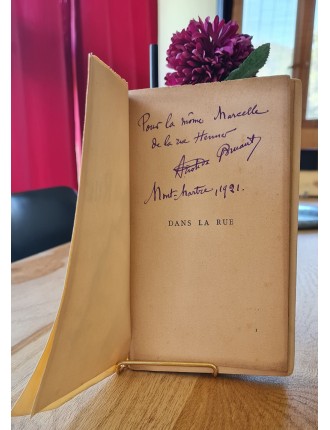 Pour la môme Marcelle
de la rue Henner
Aristide Bruant
Mont-martre, 1921.
DANS LA RUE